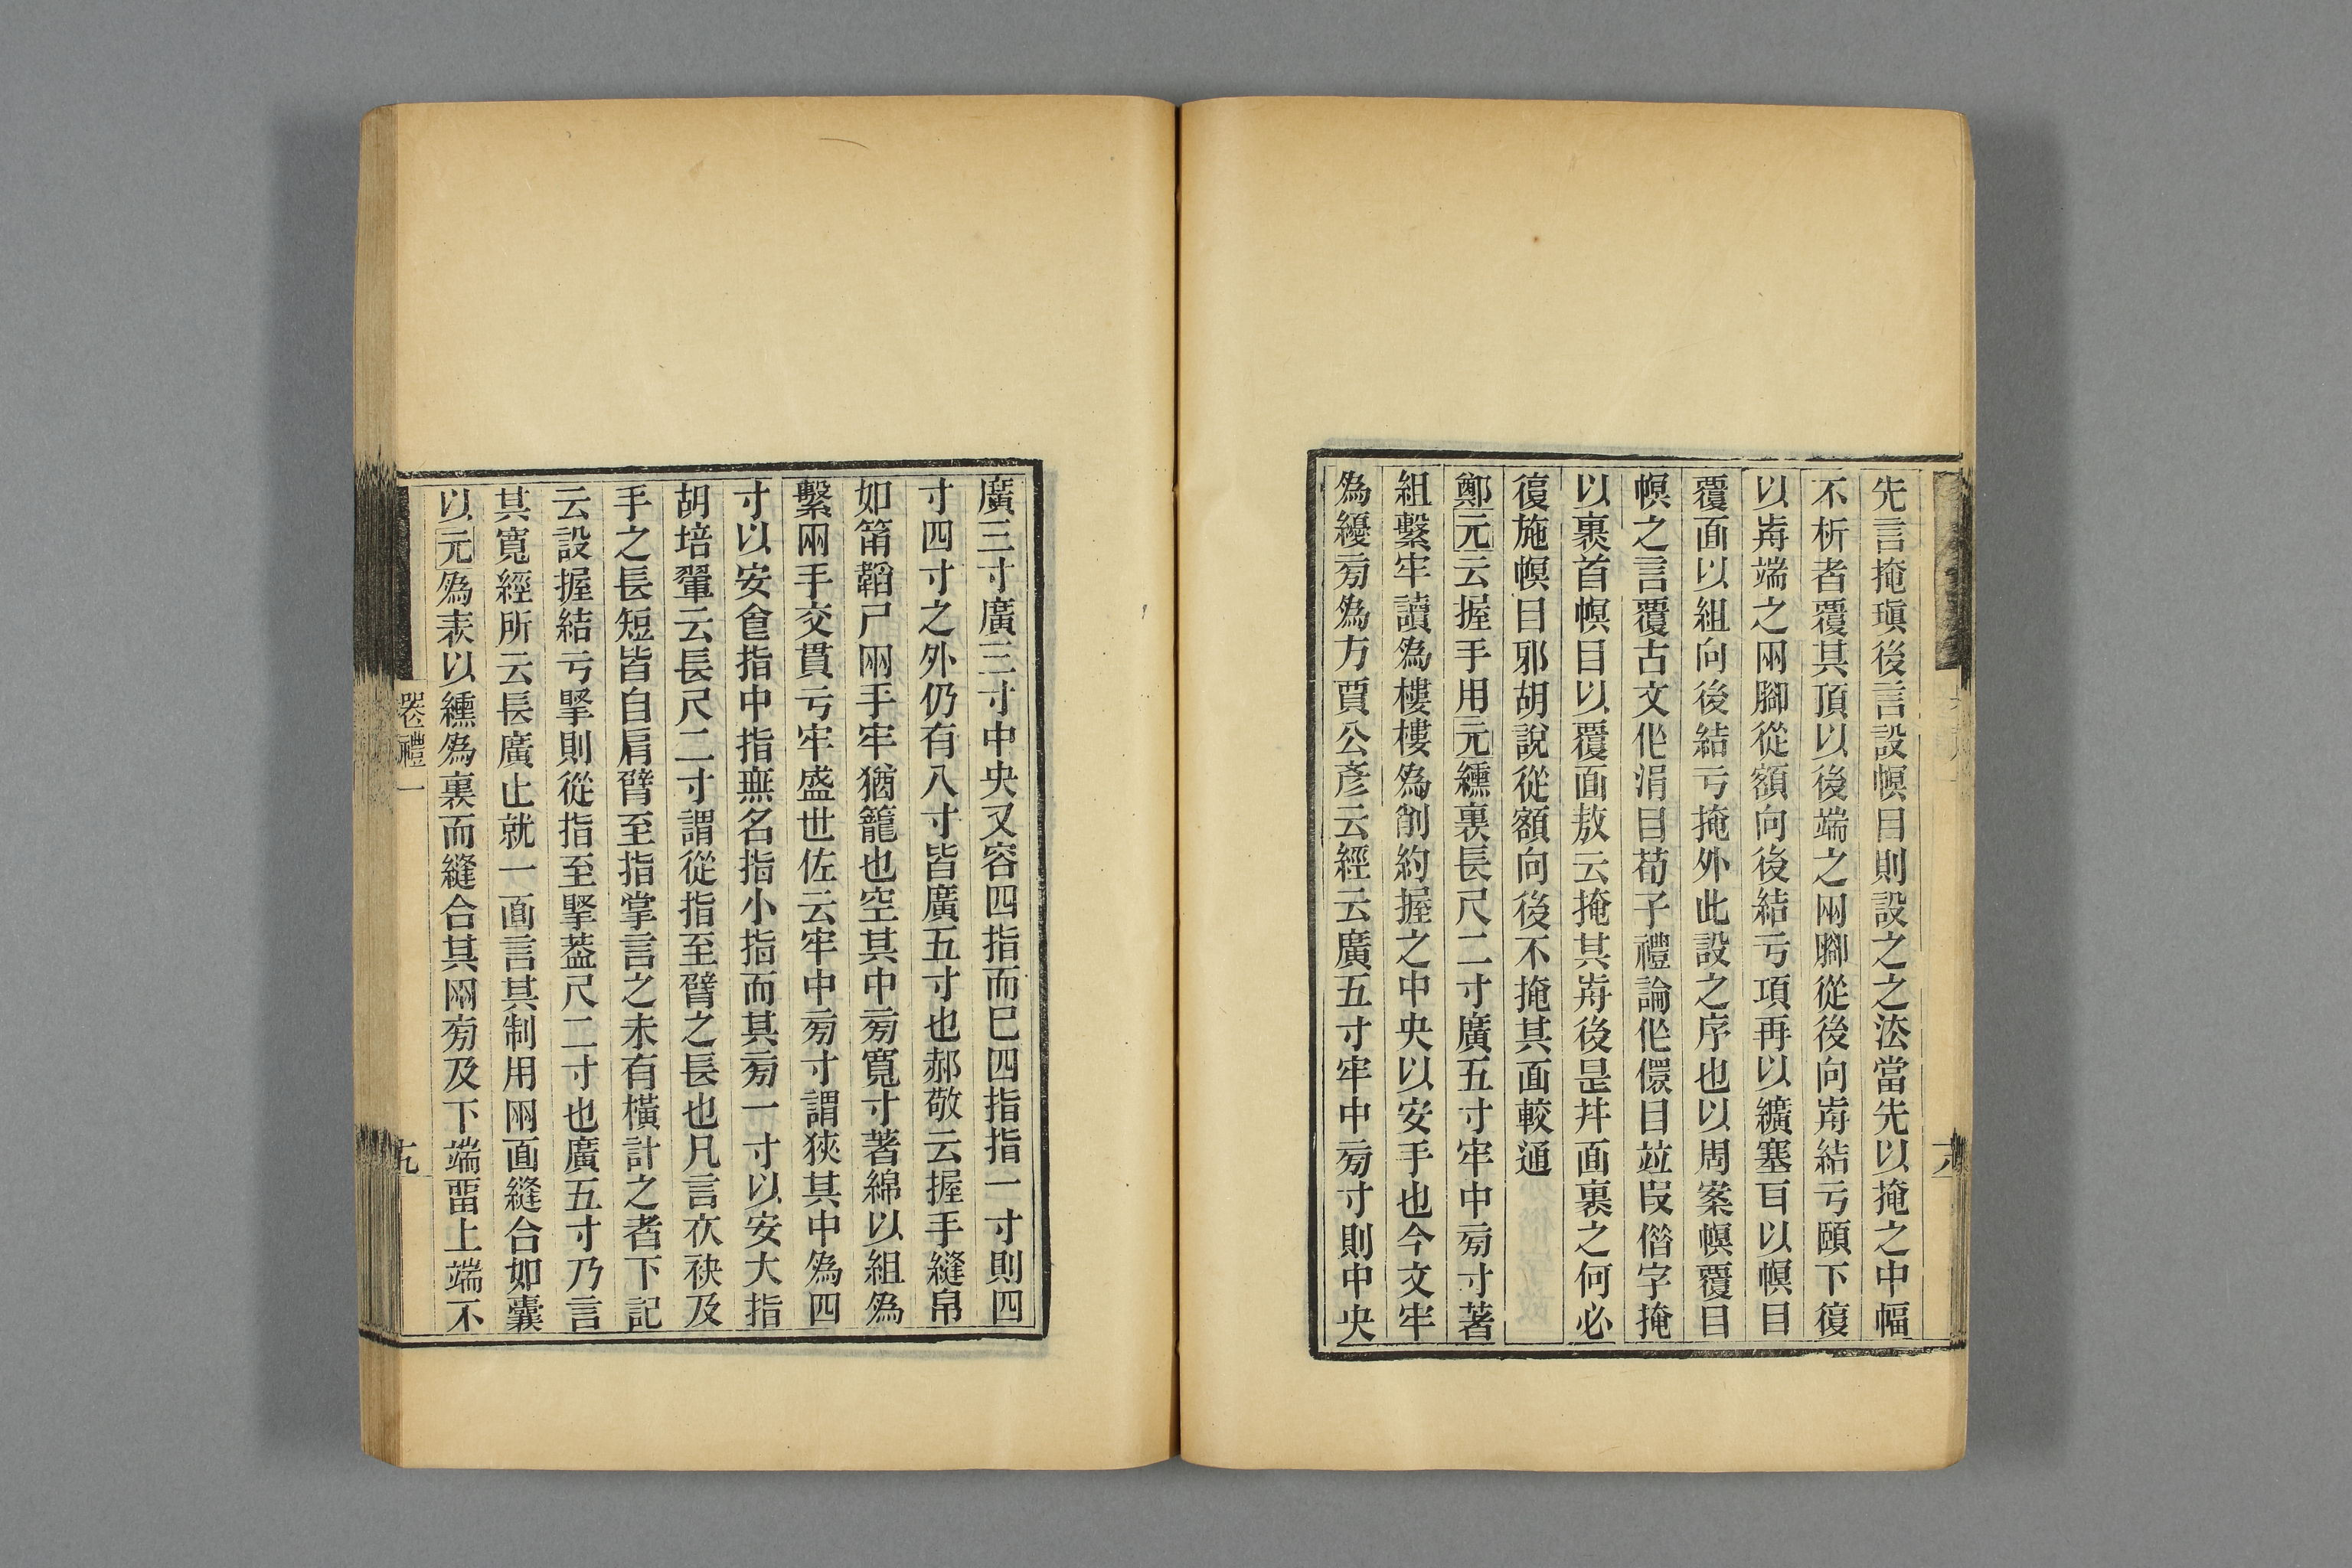 先言掩瑱後言設幎目則設之之法當先以掩之中幅
不析者覆其頂以後端之兩腳從後向歬結亏頤下復
以歬端之兩腳從額向後結亏項再以纊塞耳以幎目
覆面以組向後結亏掩外此設之序也以周案幎覆目
幎之言覆古文作涓目荀子禮論作儇目竝叚借字掩
以裹首幎目以覆面敖云掩其歬後是幷面裹之何必
復施幎目邪胡說從額向後不掩其面較通
鄭元云握手用元纁裏長尺二寸廣五寸牢中㫄寸著
組繫牢讀爲樓樓爲削約握之中央以安手也今文牢
爲纋㫄爲方賈公彥云經云廣五寸牢中㫄寸則中央
廣三寸廣三寸中央又容四指而已四指指一寸則四
寸四寸之外仍有八寸皆廣五寸也郝敬云握手縫帛
如筩韜尸兩手牢猶籠也空其中㫄寬寸著綿以組爲
繫兩手交貫亏牢盛世佐云牢中㫄寸謂狹其中爲四
寸以安食指中指無名指小指而其㫄一寸以安大指
胡培翬云長尺二寸謂從指至臂之長也凡言衣袂及
手之長短皆自肩臂至指掌言之未有橫計之者下記
云設握結亏掔則從指至掔葢尺二寸也廣五寸乃言
其寬經所云長廣止就一面言其制用兩面縫合如囊
以元爲表以纁爲裏而縫合其兩㫄及下端畱上端不
卷禮一
九